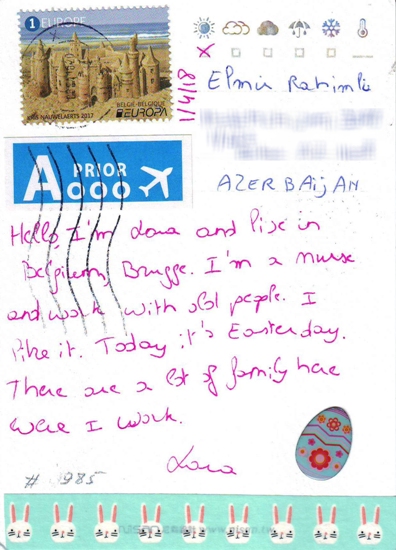 1 EUROPE
KRIS NAUWELAERTS 2017
BELGIE-BELGIQUE
EUROPA
x
1/4/18
Elmir Rahimli
A PRIOR
AZERBAijAN
Hello, I'm Lora and live in
Belgium, Brugge. I'm a nurse
and work with old people. I
like it. Today it's Easterday.
There are a lot of family here
were I work.
Lora